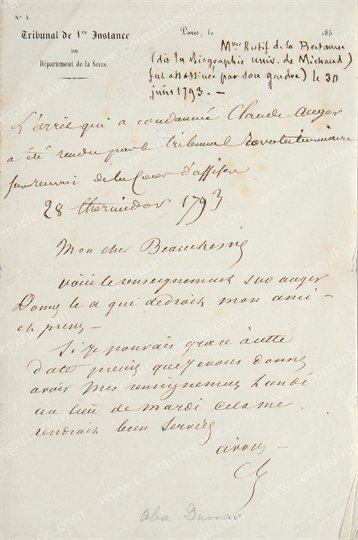 N° 4.
Tribunal de 1re Instance
DU
Département de la Seine.
Paris, le 185
Mme Restif de la Bretonne
(dit la Biographie univ. de Michaud)
fut assassinée par son gardien) le 30
juin 1793. —
L'arrêt qui a condamné Claude Auger
a été rendu par le tribunal Revolutionnaire
sur renvoi de la Cour d'assises
28 thermidor 1793
Mon cher Beauchesne
voici le renseignement sur auger
Donnez le a qui de droit mon ami
et prenez —
Si je pouvais grace a cette
date precise que je vous donne
avoir mes renseignements Lundi
au lieu de mardi cela me
rendrait bien service
a vous —
Alex Dumas
www.couraubegarie.com